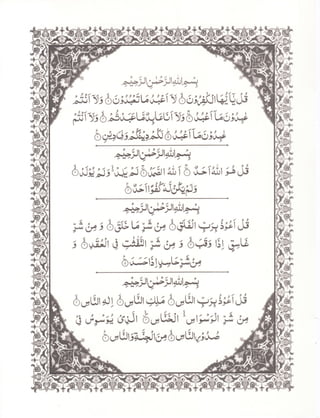 بِسْمِ اللهِ الرَّحْمٰنِ الرَّحِيْمِ
قُلْ يٰٓاَيُّهَا الْكٰفِرُوْنَ ۝ لَآ اَعْبُدُ مَا تَعْبُدُوْنَ ۝ وَلَآ اَنْتُمْ
عٰبِدُوْنَ مَآ اَعْبُدُ ۝ وَلَآ اَنَا عَابِدٌ مَّا عَبَدْتُّمْ ۝ وَلَآ اَنْتُمْ
عٰبِدُوْنَ مَآ اَعْبُدُ ۝ لَكُمْ دِيْنُكُمْ وَلِيَ دِيْنِ ۝
بِسْمِ اللهِ الرَّحْمٰنِ الرَّحِيْمِ
قُلْ هُوَ اللهُ اَحَدٌ ۝ اَللهُ الصَّمَدُ ۝ لَمْ يَلِدْ وَلَمْ يُوْلَدْ ۝
وَلَمْ يَكُنْ لَّهٗ كُفُوًا اَحَدٌ ۝
بِسْمِ اللهِ الرَّحْمٰنِ الرَّحِيْمِ
قُلْ اَعُوْذُ بِرَبِّ الْفَلَقِ ۝ مِنْ شَرِّ مَا خَلَقَ ۝ وَ مِنْ شَرِّ
غَاسِقٍ اِذَا وَقَبَ ۝ وَ مِنْ شَرِّ النَّفّٰثٰتِ فِي الْعُقَدِ ۝ وَ
مِنْ شَرِّ حَاسِدٍ اِذَا حَسَدَ ۝
بِسْمِ اللهِ الرَّحْمٰنِ الرَّحِيْمِ
قُلْ اَعُوْذُ بِرَبِّ النَّاسِ ۝ مَلِكِ النَّاسِ ۝ اِلٰهِ النَّاسِ ۝
مِنْ شَرِّ الْوَسْوَاسِ الْخَنَّاسِ ۝ الَّذِيْ يُوَسْوِسُ فِيْ
صُدُوْرِ النَّاسِ ۝ مِنَ الْجِنَّةِ وَالنَّاسِ ۝